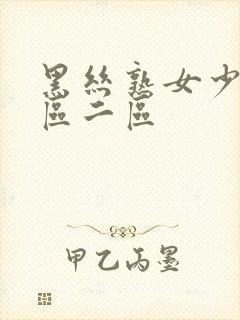 黑丝熟女少
區二區
甲乙丙墨